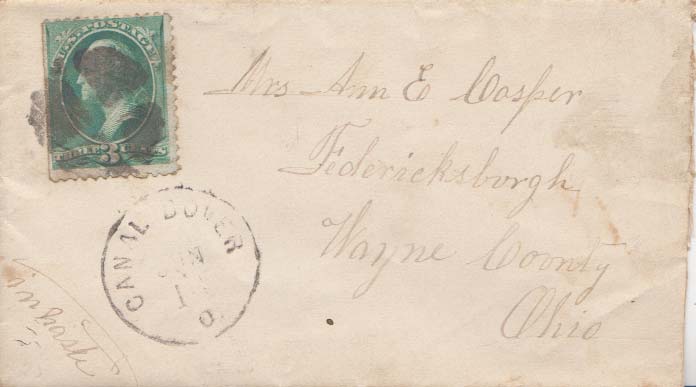 U.S. POSTAGE
THREE 3 CENTS
Mrs Ann E Casper
Federicksborgh
Wayne County
Ohio
CANAL DOVER
O.
in haste